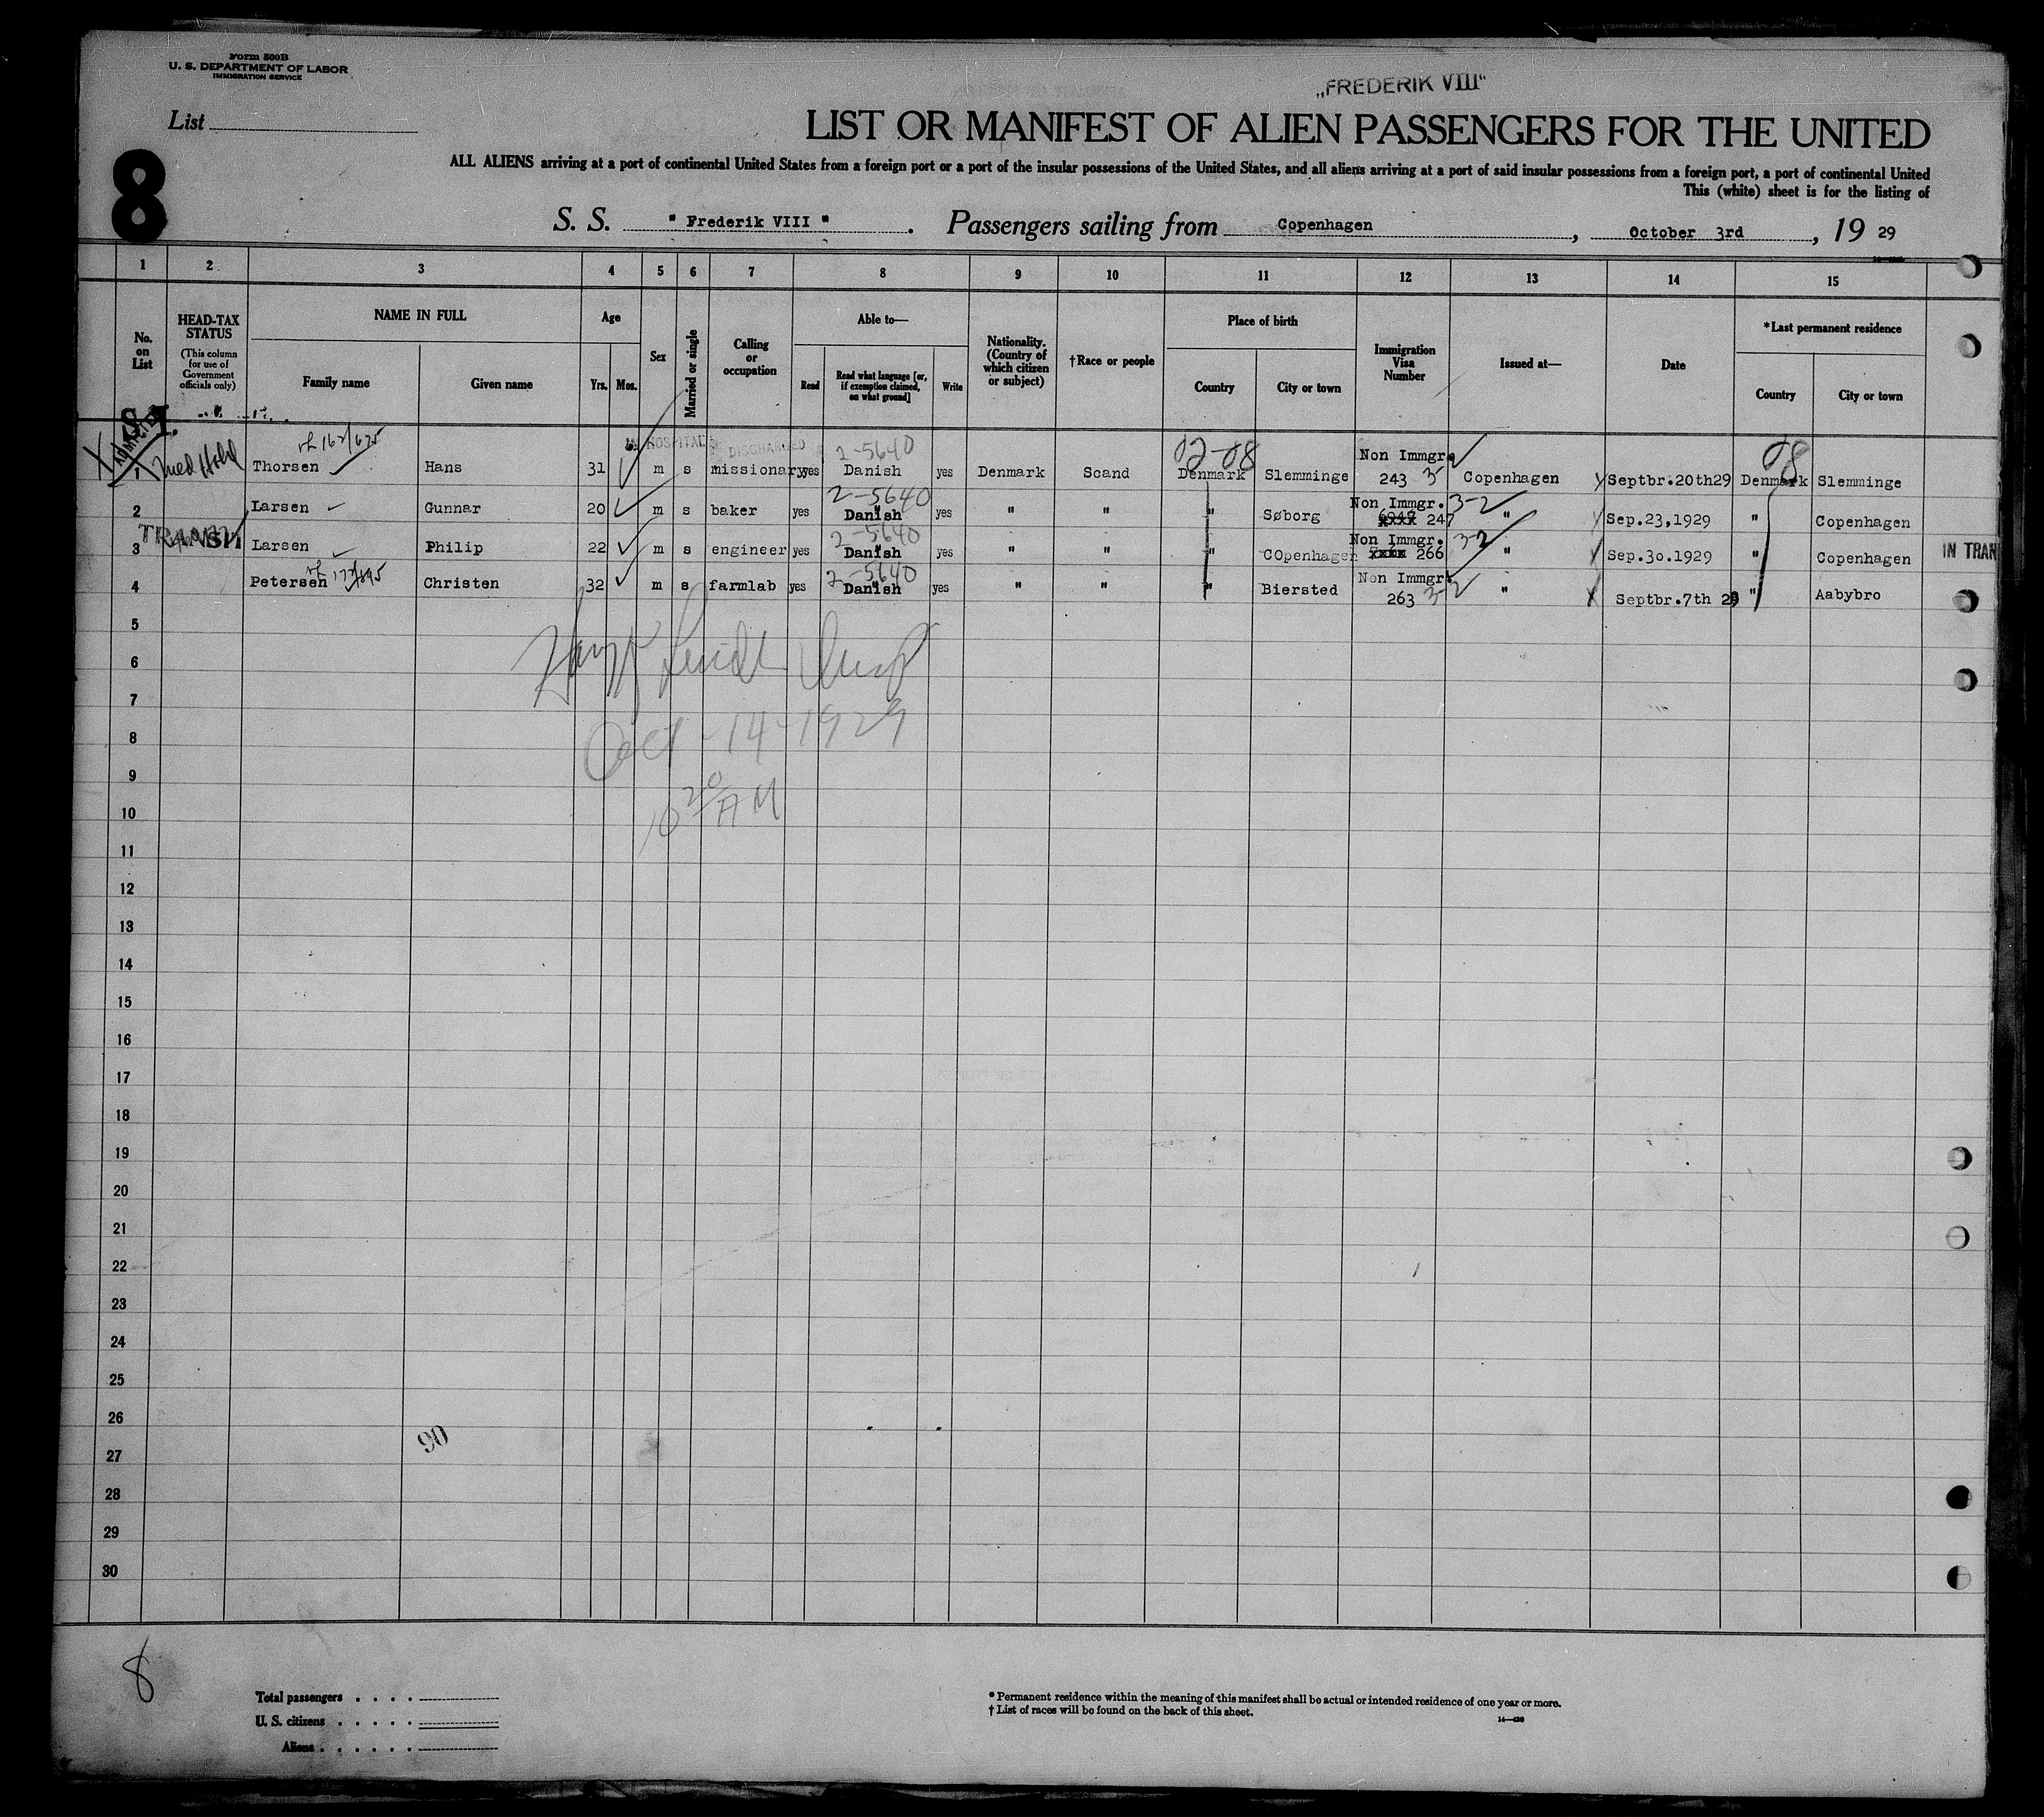 Form 500B
U. S. DEPARTMENT OF LABOR
IMMIGRATION SERVICE
„FREDERIK VIII"
List
LIST OR MANIFEST OF ALIEN PASSENGERS FOR THE UNITED
8
ALL ALIENS arriving at a port of continental United States from a foreign port or a port of the insular possessions of the United States, and all aliens arriving at a port of said insular possessions from a foreign port, a port of continental United
This (white) sheet is for the listing of
S. S. " Frederik VIII " . Passengers sailing from Copenhagen , October 3rd , 19 29
1 2 3 4 5 6 7 8 9 10 11 12 13 14 15
No. on List
HEAD-TAX STATUS
(This column for use of Government officials only)
NAME IN FULL
Family name Given name
Age
Yrs. Mos.
Sex
Married or single
Calling or occupation
Able to—
Read Read what language [or, if exemption claimed, on what ground] Write
Nationality. (Country of which citizen or subject)
†Race or people
Place of birth
Country City or town
Immigration Visa Number
Issued at—
Date
*Last permanent residence
Country City or town
ADMITTED
Med Hold
162/625
IN HOSPITAL DISCHARGED 2-5640 02-08 08
1 Thorsen Hans 31 m s missionary yes Danish yes Denmark Scand Denmark Slemminge Non Immgr. 243 3 Copenhagen Septbr.20th29 Denmark Slemminge
2-5640
2 Larsen Gunnar 20 m s baker yes Danish yes " " " Søborg Non Immgr. 247 3-2 " Sep.23,1929 " Copenhagen
TRANSIT
2-5640
3 Larsen Philip 22 m s engineer yes Danish yes " " " COpenhagen Non Immgr. 266 3-2 " Sep.3o.1929 " Copenhagen IN TRAN
2-5640
4 Petersen Christen 32 m s farmlab yes Danish yes " " " Biersted Non Immgr. 263 3-2 " Septbr.7th 29 " Aabybro
5
6
7
Oct-14-1929
8
9
10 20 AM
10
11
12
13
14
15
16
17
18
19
20
21
22
23
24
25
26
90
27
28
29
30
8
Total passengers . . . .
U. S. citizens . . . . .
Aliens . . . . . .
* Permanent residence within the meaning of this manifest shall be actual or intended residence of one year or more.
† List of races will be found on the back of this sheet.